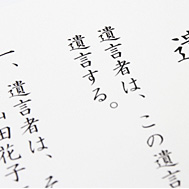 遺
遺言者は、この遺言
遺言する。
一、遺言者は、そ
山田花子